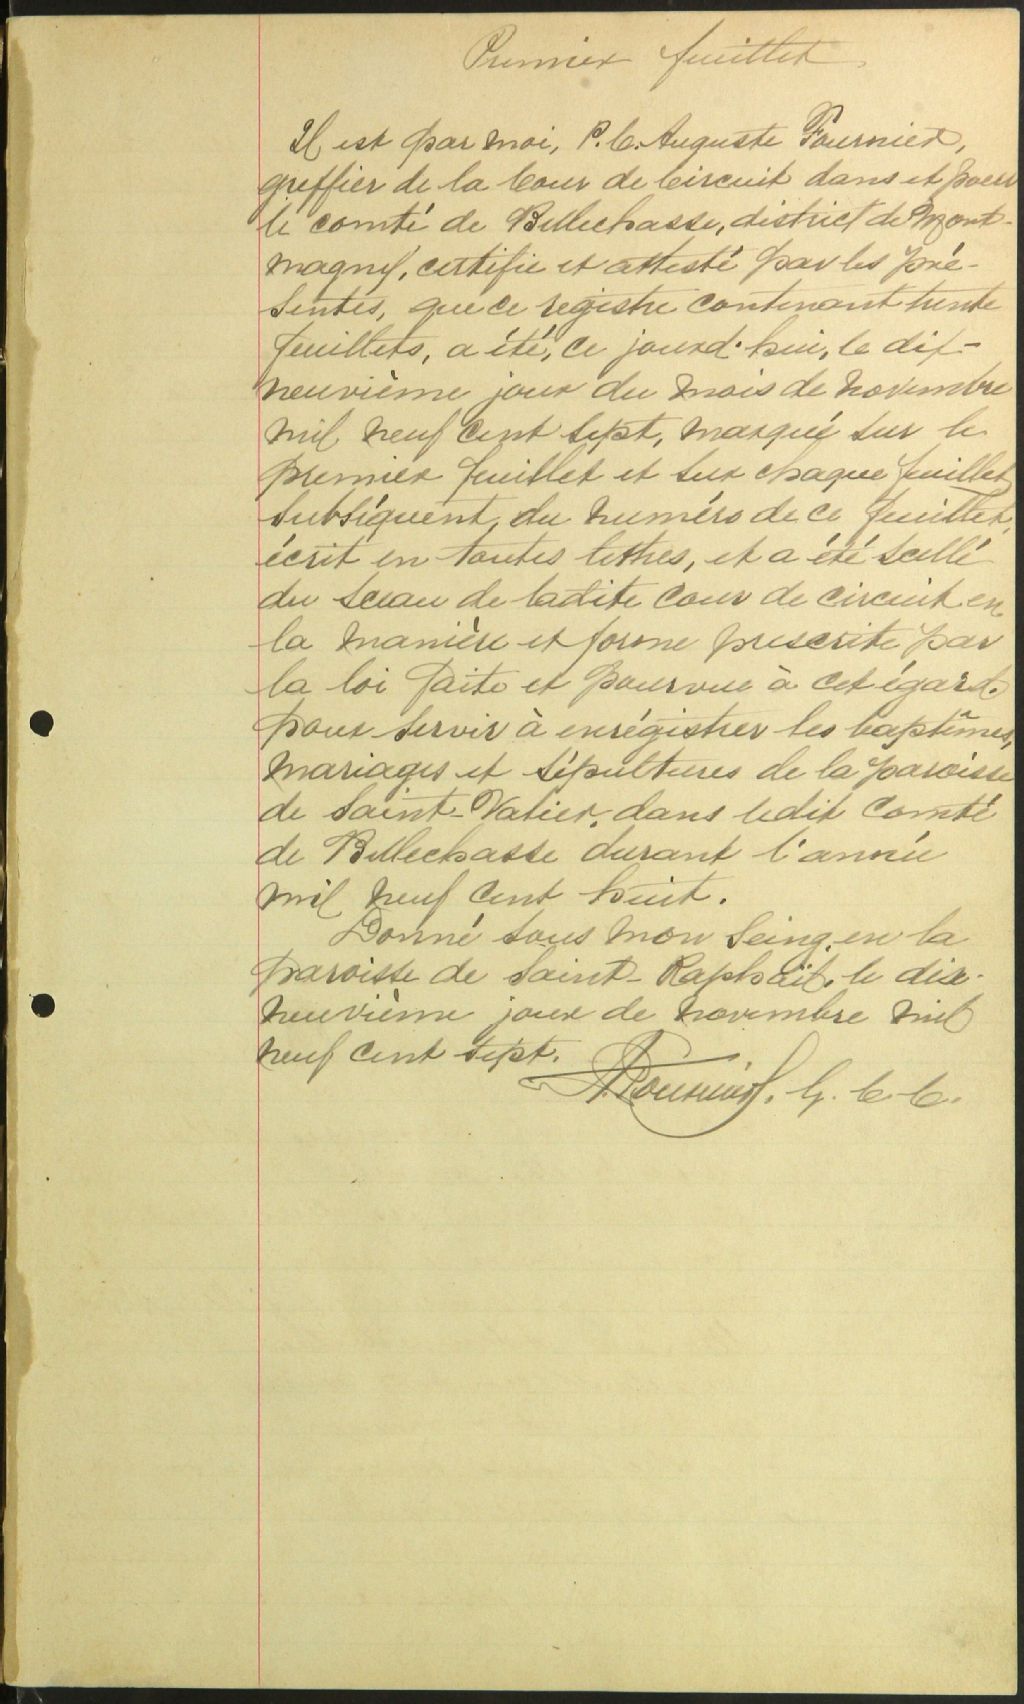 Premier feuillet.
Il est par moi, P. C. Auguste Fournier,
greffier de la Cour de Circuit dans et pour
le comté de Bellechasse, district de Mont-
magny, certifié et attesté par les pré-
sentes, que ce registre contenant trente
feuillets, a été, ce jourd'hui, le dix-
neuvième jour du mois de novembre
mil neuf cent sept, marqué sur le
premier feuillet et sur chaque feuillet
subséquent, du numéro de ce feuillet,
écrit en toutes lettres, et a été scellé
du sceau de ladite Cour de circuit en
la manière et forme prescrite par
la loi faite et pourvue à cet égard.
pour servir à enrégistrer les baptêmes,
mariages et sépultures de la paroisse
de Saint-Valier, dans ledit Comté
de Bellechasse durant l'année
mil neuf cent huit.
Donné sous mon Seing, en la
paroisse de Saint-Raphaël, le dix-
neuvième jour de novembre mil
neuf cent sept.
A. Fournier, G. C. C.